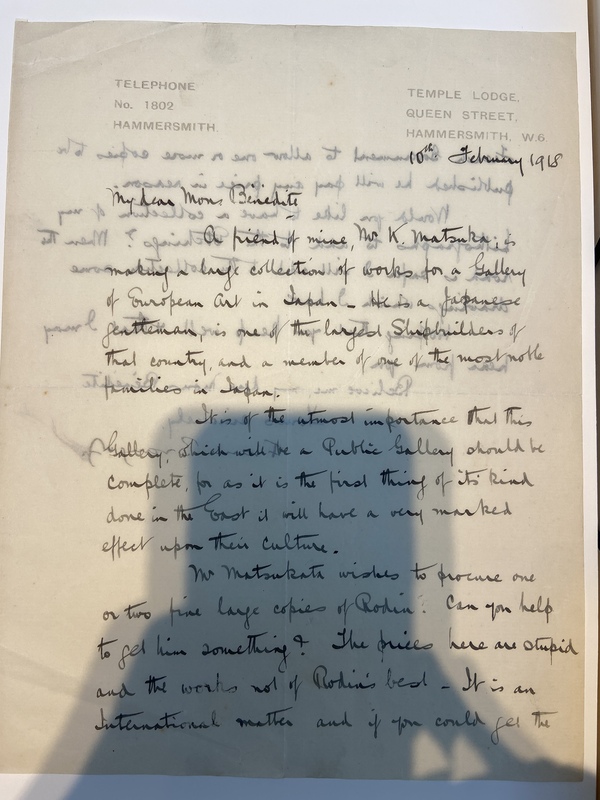 TELEPHONE
No. 1802
HAMMERSMITH.
TEMPLE LODGE,
QUEEN STREET,
HAMMERSMITH, W.6.
10th February 1918
My dear Mons Bénédite
A friend of mine, Mr K. Matsuka, is
making a large collection of works for a Gallery
of European Art in Japan - He is a Japanese
gentleman, is one of the largest Shipbuilders of
that country, and a member of one of the most noble
families in Japan.
It is of the utmost importance that this
Gallery, which will be a Public Gallery should be
complete, for as it is the first thing of its kind
done in the East it will have a very marked
effect upon their culture.
Mr Matsukata wishes to procure one
or two fine large copies of Rodin. Can you help
to get him something? The prices here are stupid
and the works not of Rodin's best - It is an
International matter and if you could get the